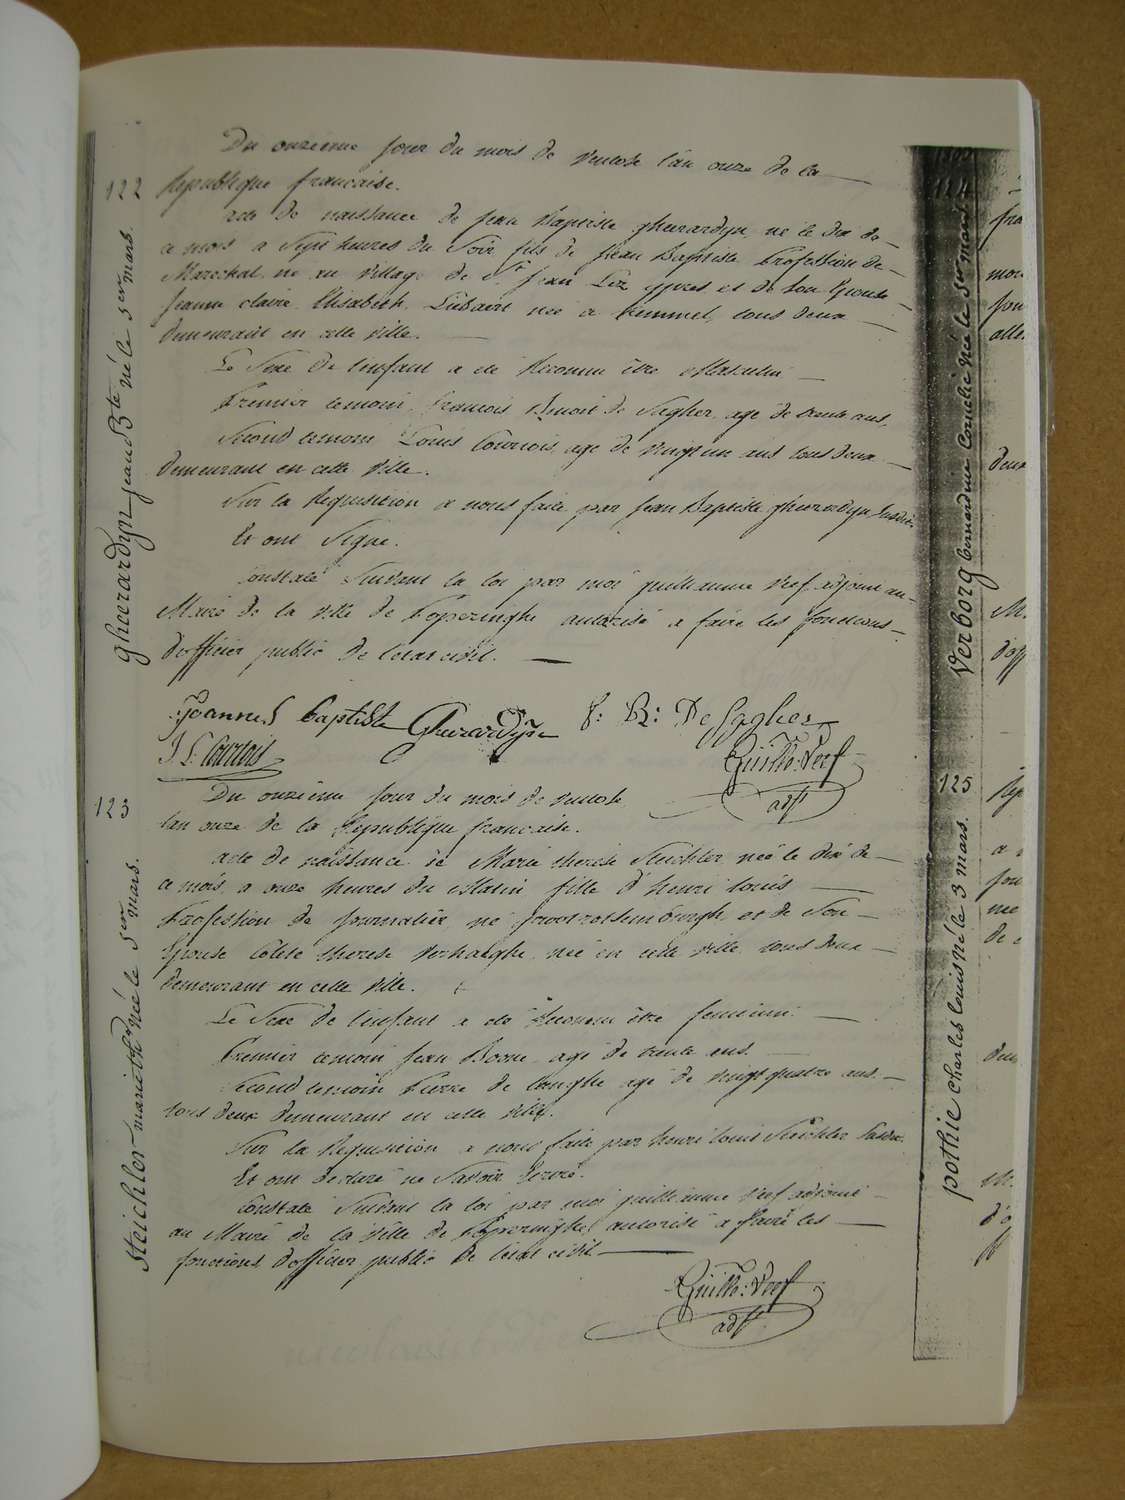 122
gheerardyn jean Bte né le 1er mars.
Du onzieme jour du mois de ventose l'an onze de la
Republique francaise.
acte de naissance de Jean Baptiste gheerardyn, né le dix de
ce mois a Sept heures du Soir fils de Jean Baptiste Profession de
Marechal né au village de St. Jean Lez ypres et de Son Epouse
Jeanne claire Elisabeth née a Kemmel, tous deux
demeurant en cette ville.
Le Sexe de l'enfant a eté Reconnu être Masculin
Premier temoin, francois Benoit de Sagher, agé de trente ans,
Second temoin Louis Courtois, age de vingt un ans tous deux
demeurant en cette ville.
Sur la Requisition a nous faite par Jean Baptiste gheerardyn Susdit
Et ont Signe.
Constaté Suivant la loi par moi guillaume Verf adjoint au
Maire de la ville de Poperinghe autorisé a faire les fonctions
d'officier public de l'etat civil.
Joannes baptiste Gheerardijn
F: B: De Sagher
J L Courtois
Guill: Verf
adjt
123
Steichler marie thr née le 1er mars.
Du onzieme jour du mois de ventose
l'an onze de la Republique francaise.
acte de naissance de Marie therese Steichler née le dix de
ce mois, a onze heures du Matin fille d'henri louis
Profession de journalier, né et de Son
Epouse Colete therese Verhaeghe, née en cette ville tous deux
demeurant en cette ville.
Le Sexe de l'enfant a eté Reconnu être feminin.
Premier temoin Jean Boone agé de trente ans.
Second temoin Pierre de langhe agé de vingt quatre ans
tous deux demeurant en cette ville.
Sur la Requisition a nous faite par henri louis Steichler Susdit
Et ont declaré ne Savoir Ecrire.
Constaté Suivant la loi par moi guillaume Verf adjoint
au Maire de la ville de Poperinghe autorisé a faire les
fonctions d'officier public de l'etat civil
Guill: Verf
adjt
124
Verborg bernardine Cornelie née le 1er mars
125
pothie Charles louis né le 3 mars.